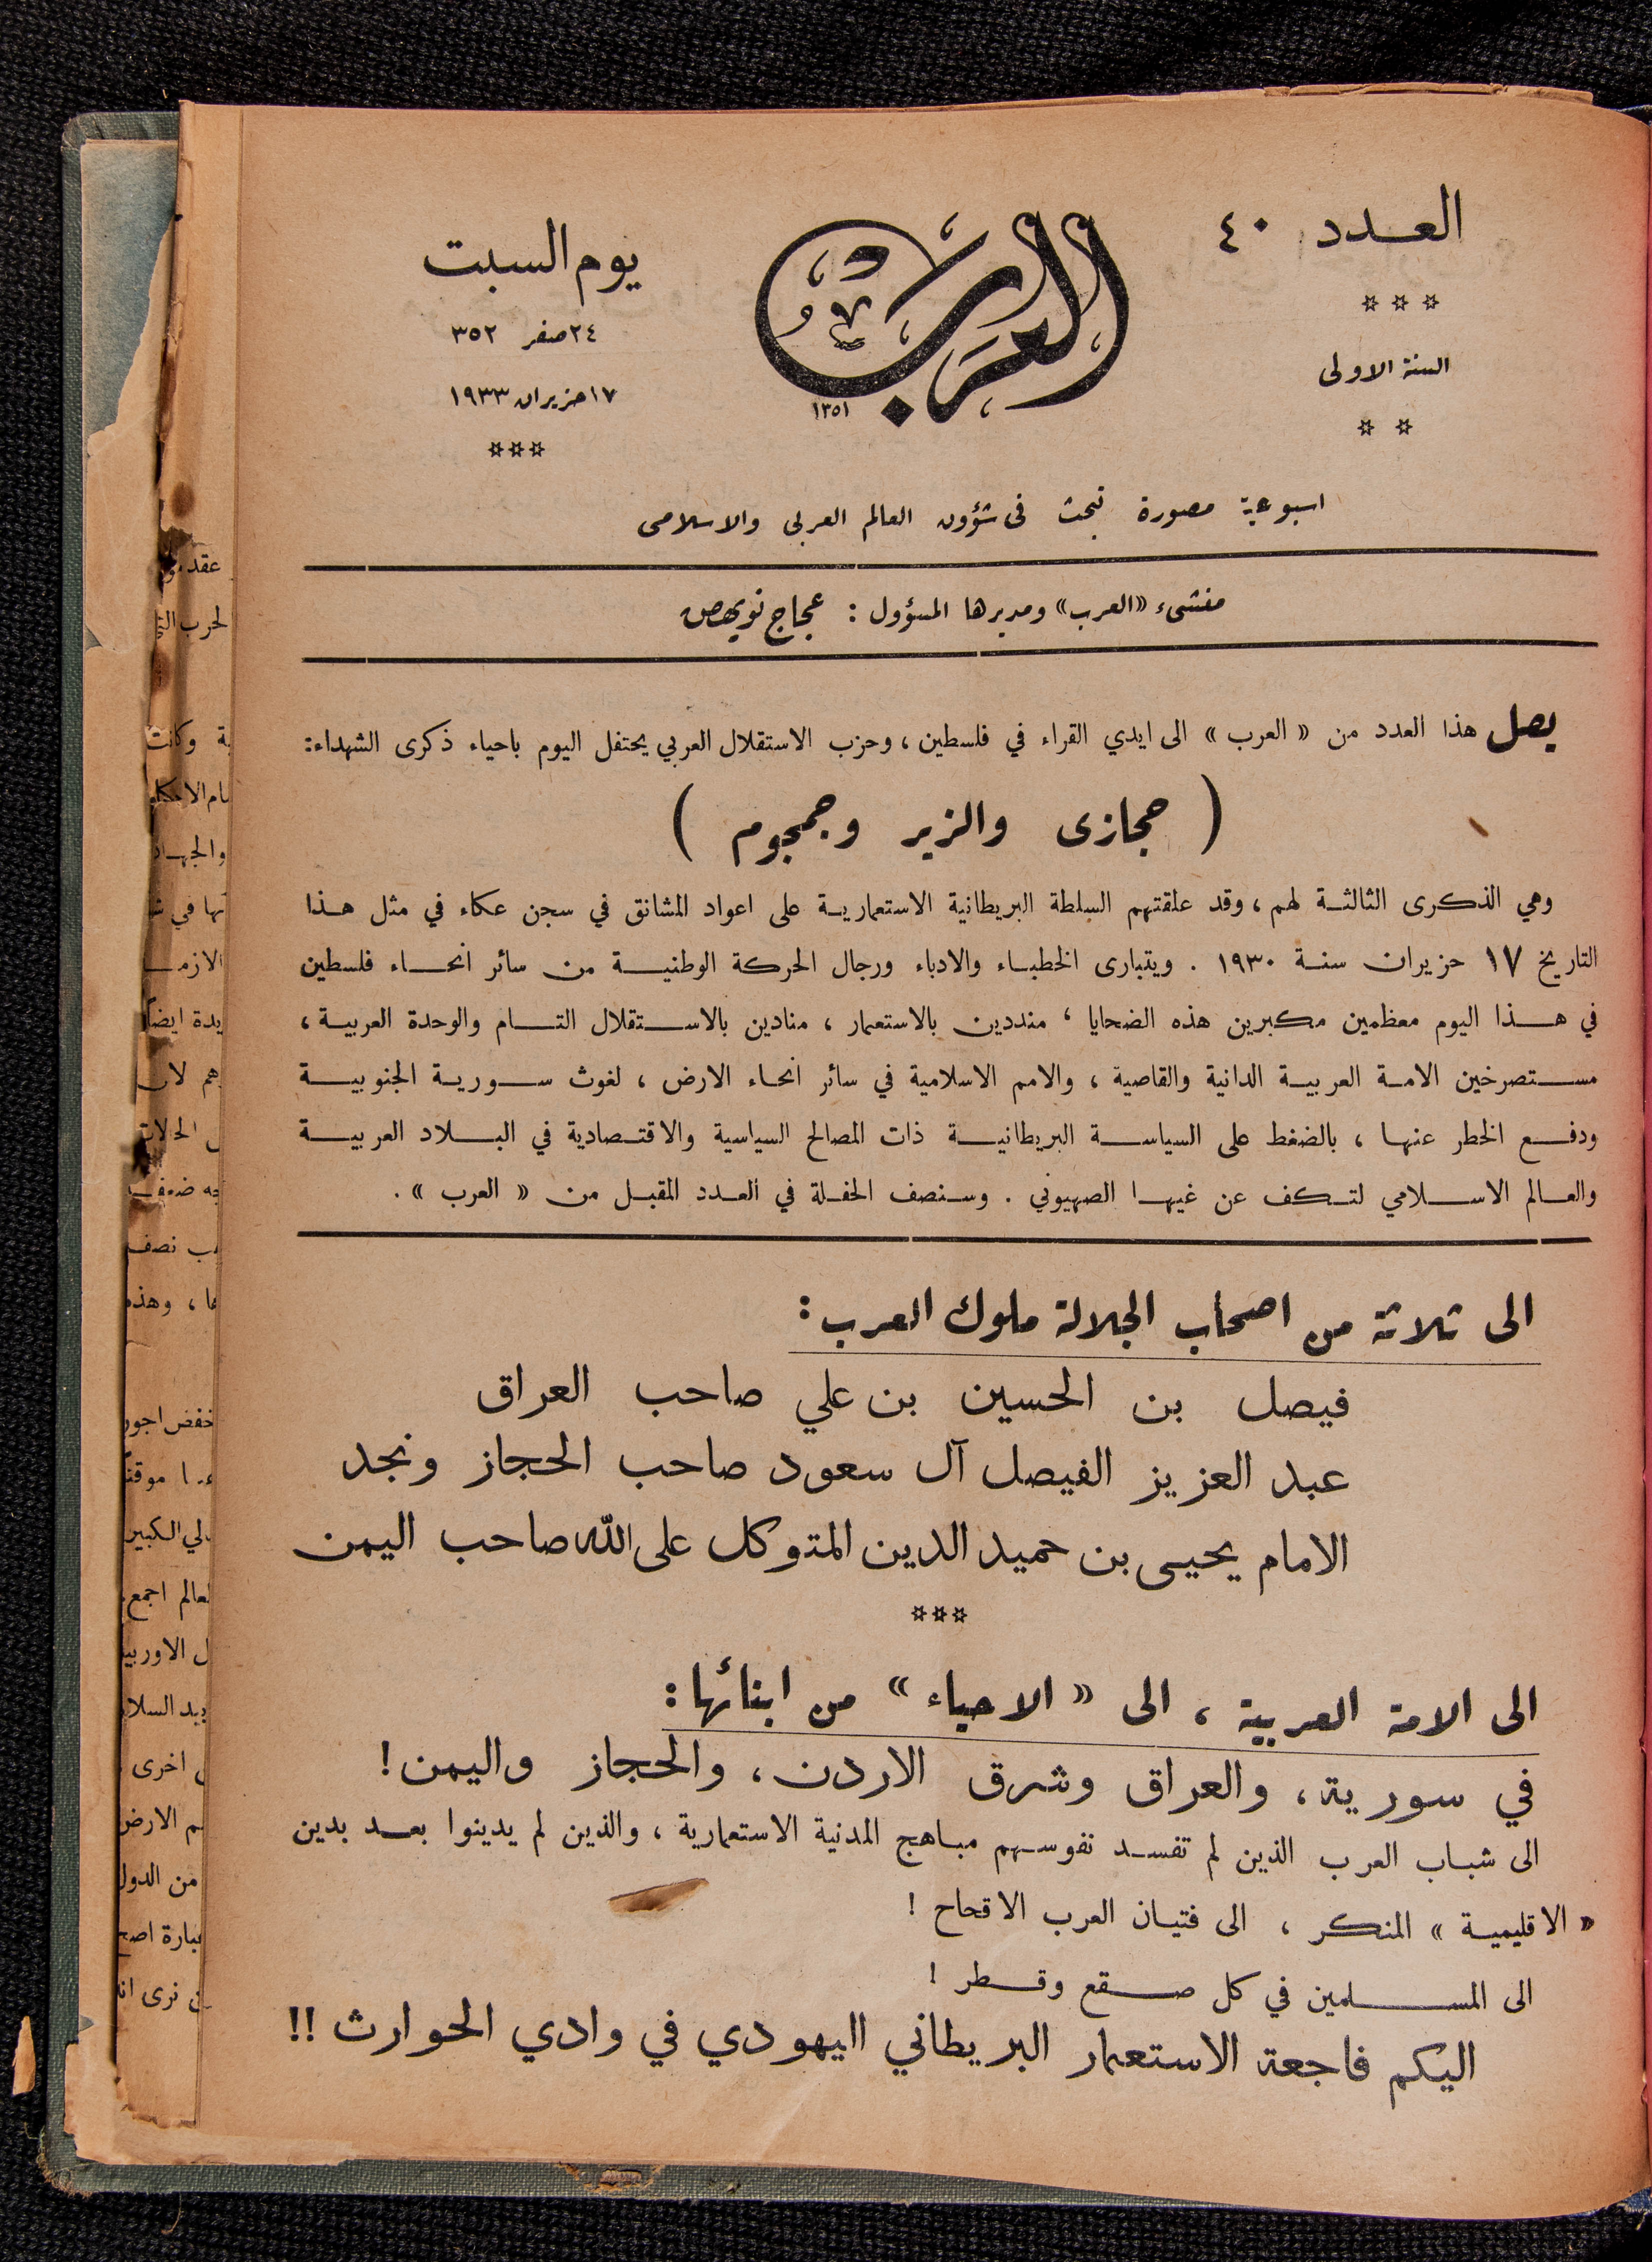 العدد ٤٠
السنة الاولى
العرب
١٣٥١
يوم السبت
٢٤ صفر ٣٥٢
١٧ حزيران ١٩٣٣
اسبوعية مصورة تبحث فى شؤون العالم العربى والاسلامى
منشىء «العرب» ومديرها المسؤول : عجاج نويهض
يصل هذا العدد من « العرب » الى ايدي القراء في فلسطين ، وحزب الاستقلال العربي يحتفل اليوم باحياء ذكرى الشهداء:
( حجازى والزير وجمجوم )
وهي الذكرى الثالثة لهم ، وقد علقتهم السلطة البريطانية الاستعمارية على اعواد المشانق في سجن عكاء في مثل هذا
التاريخ ١٧ حزيران سنة ١٩٣٠ . ويتبارى الخطباء والادباء ورجال الحركة الوطنية من سائر انحاء فلسطين
في هذا اليوم معظمين مكبرين هذه الضحايا ، منددين بالاستعمار ، منادين بالاستقلال التام والوحدة العربية ،
مستصرخين الامة العربية الدانية والقاصية ، والامم الاسلامية في سائر انحاء الارض ، لغوث سورية الجنوبية
ودفع الخطر عنها ، بالضغط على السياسة البريطانية ذات المصالح السياسية والاقتصادية في البلاد العربية
والعالم الاسلامي لتكف عن غيها الصهيوني . وسنصف الحفلة في العدد المقبل من « العرب » .
الى ثلاثة من اصحاب الجلالة ملوك العرب :
فيصل بن الحسين بن علي صاحب العراق
عبد العزيز الفيصل آل سعود صاحب الحجاز ونجد
الامام يحيى بن حميد الدين المتوكل على الله صاحب اليمن
الى الامة العربية ، الى « الاحياء » من ابنائها :
في سورية ، والعراق وشرق الاردن ، والحجاز واليمن !
الى شباب العرب الذين لم تفسد نفوسهم مباهج المدنية الاستعمارية ، والذين لم يدينوا بعد بدين
« الاقليمية » المنكر ، الى فتيان العرب الاقحاح !
الى المسلمين في كل صقع وقطر !
اليكم فاجعة الاستعمار البريطاني اليهودي في وادي الحوارث !!